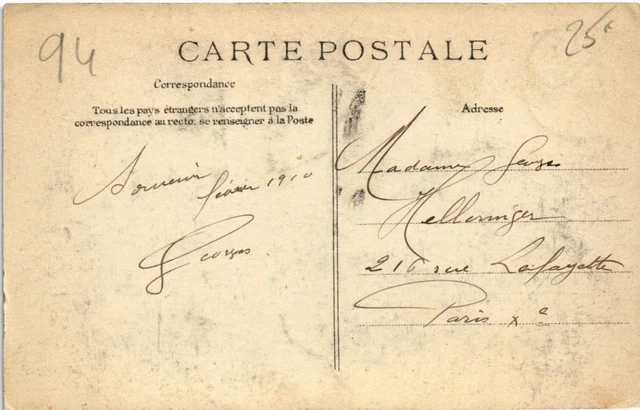 94
25c
CARTE POSTALE
Correspondance
Tous les pays étrangers n'acceptent pas la
correspondance au recto, se renseigner à la Poste
Adresse
Souvenir
février 1910
Georges
Madame Georges
216 rue Lafayette
Paris Xe